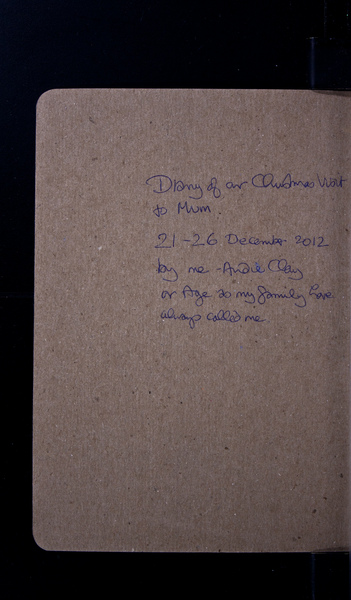 Diary of our Christmas Visit
to Mum.
21-26 December 2012
by me - Andie Clay
or Age as my family have
always called me